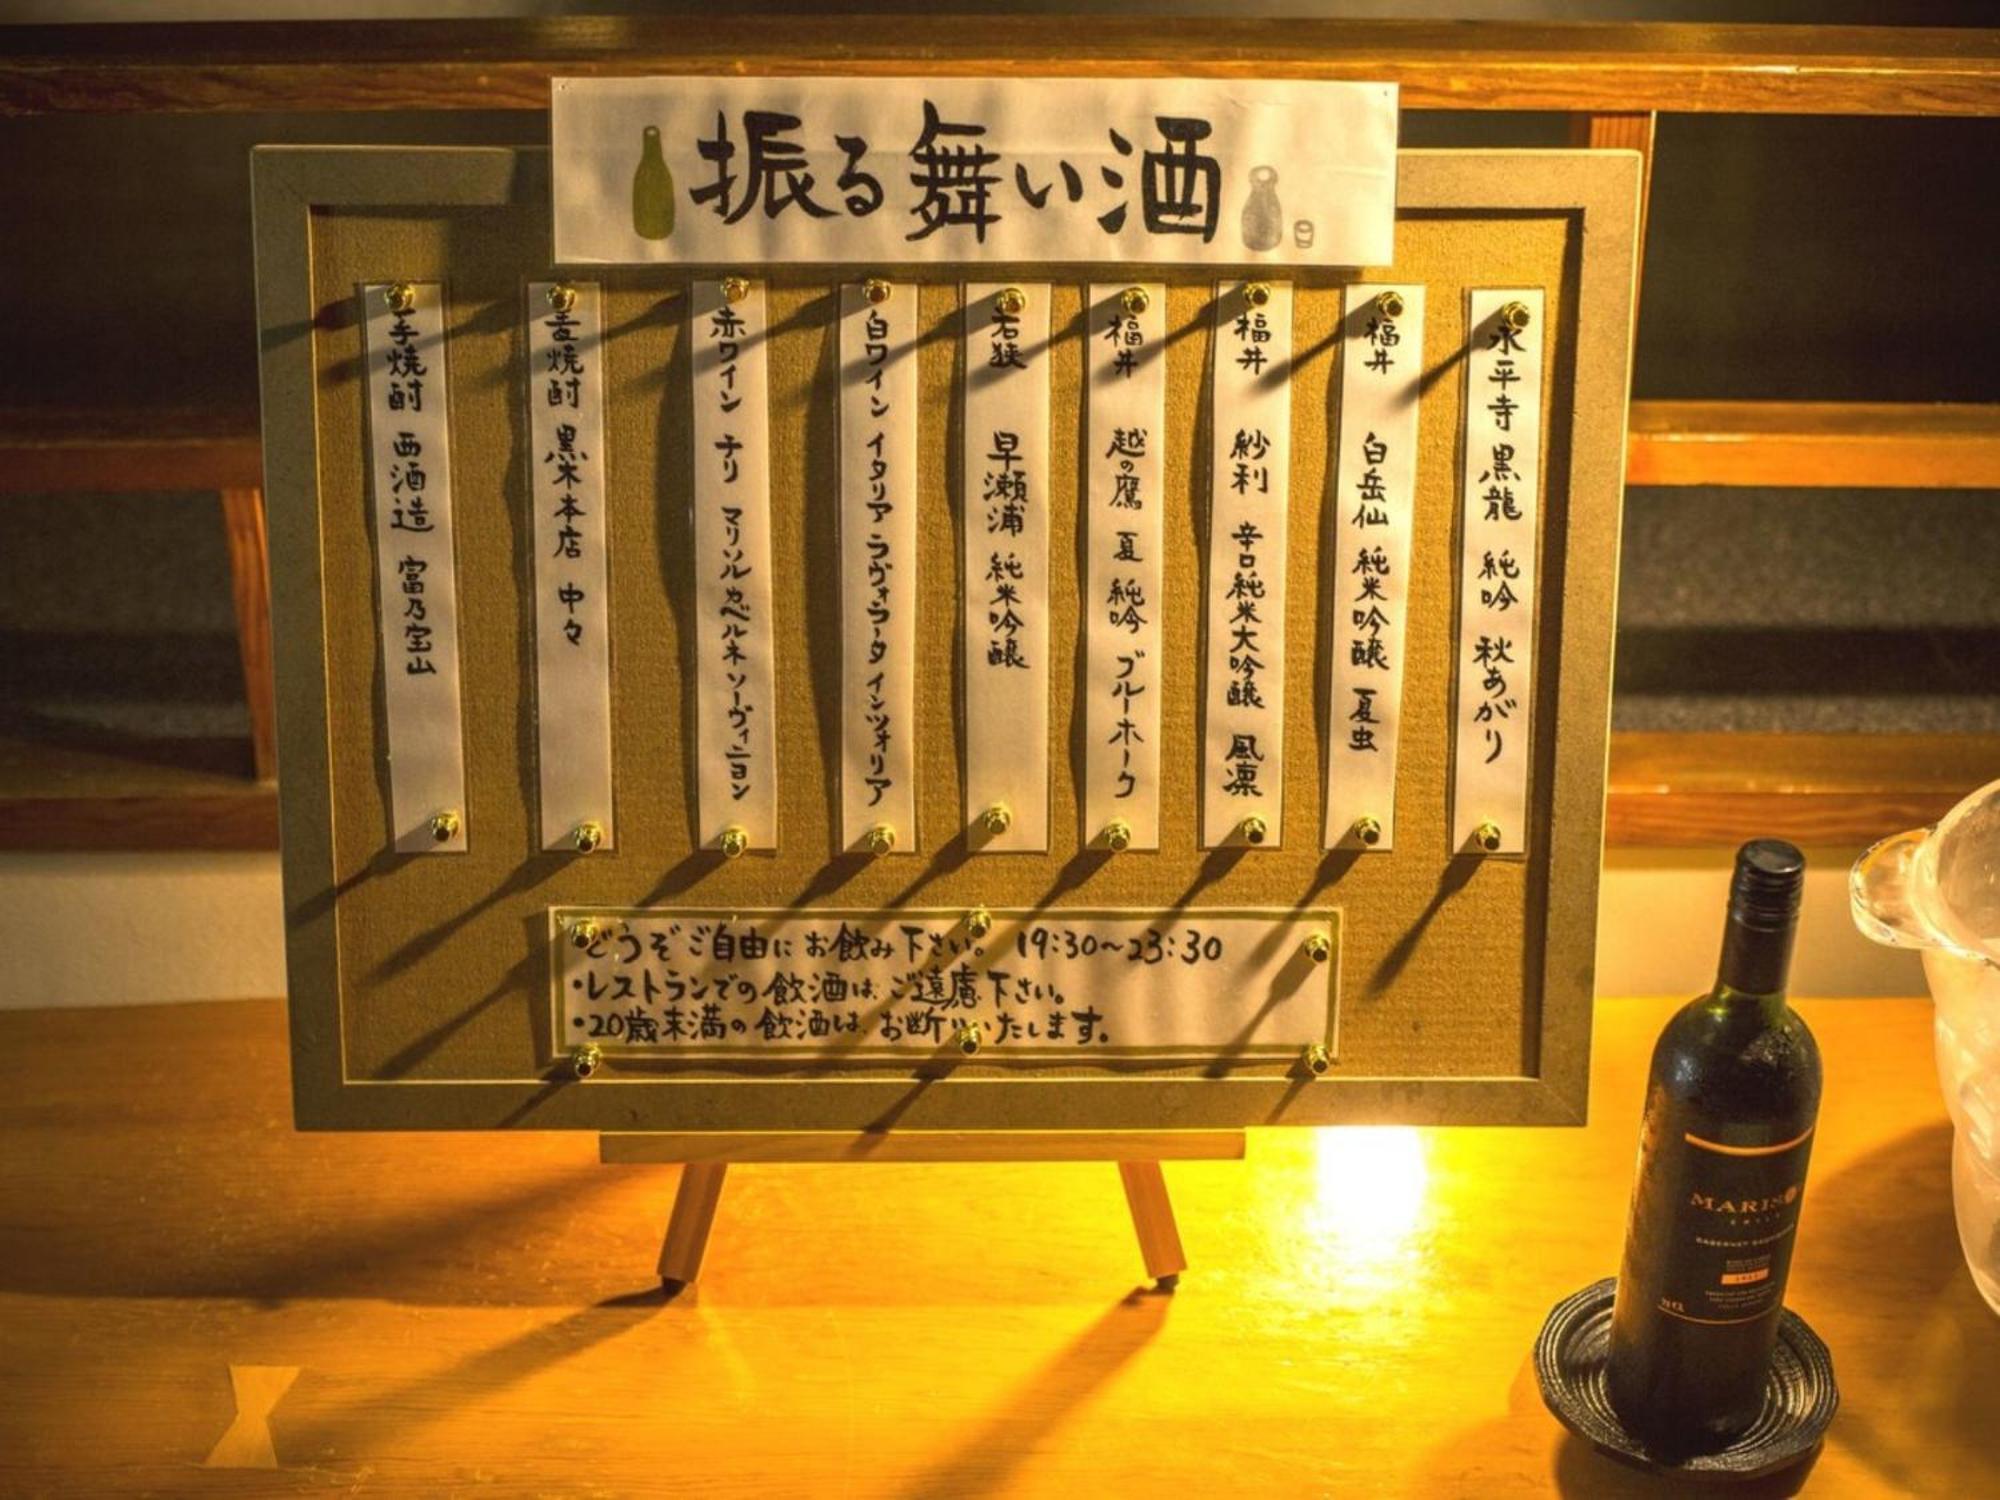 振る舞い酒
永平寺 黒龍 純吟 秋あがり
福井 白岳仙 純米吟醸 夏虫
福井 紗利 辛口純米大吟醸 風凛
福井 越の鷹 夏 純吟 ブルーホーク
若狭 早瀬浦 純米吟醸
白ワイン イタリア ラヴォラータ インツォリア
赤ワイン チリ マリソル カベルネ ソーヴィニヨン
麦焼酎 黒木本店 中々
芋焼酎 西酒造 富乃宝山
どうぞご自由にお飲み下さい。 19:30~23:30
・レストランでの飲酒は、ご遠慮下さい。
・20歳未満の飲酒は、お断りいたします。
MARISO
CABERNET SAUVIGNON